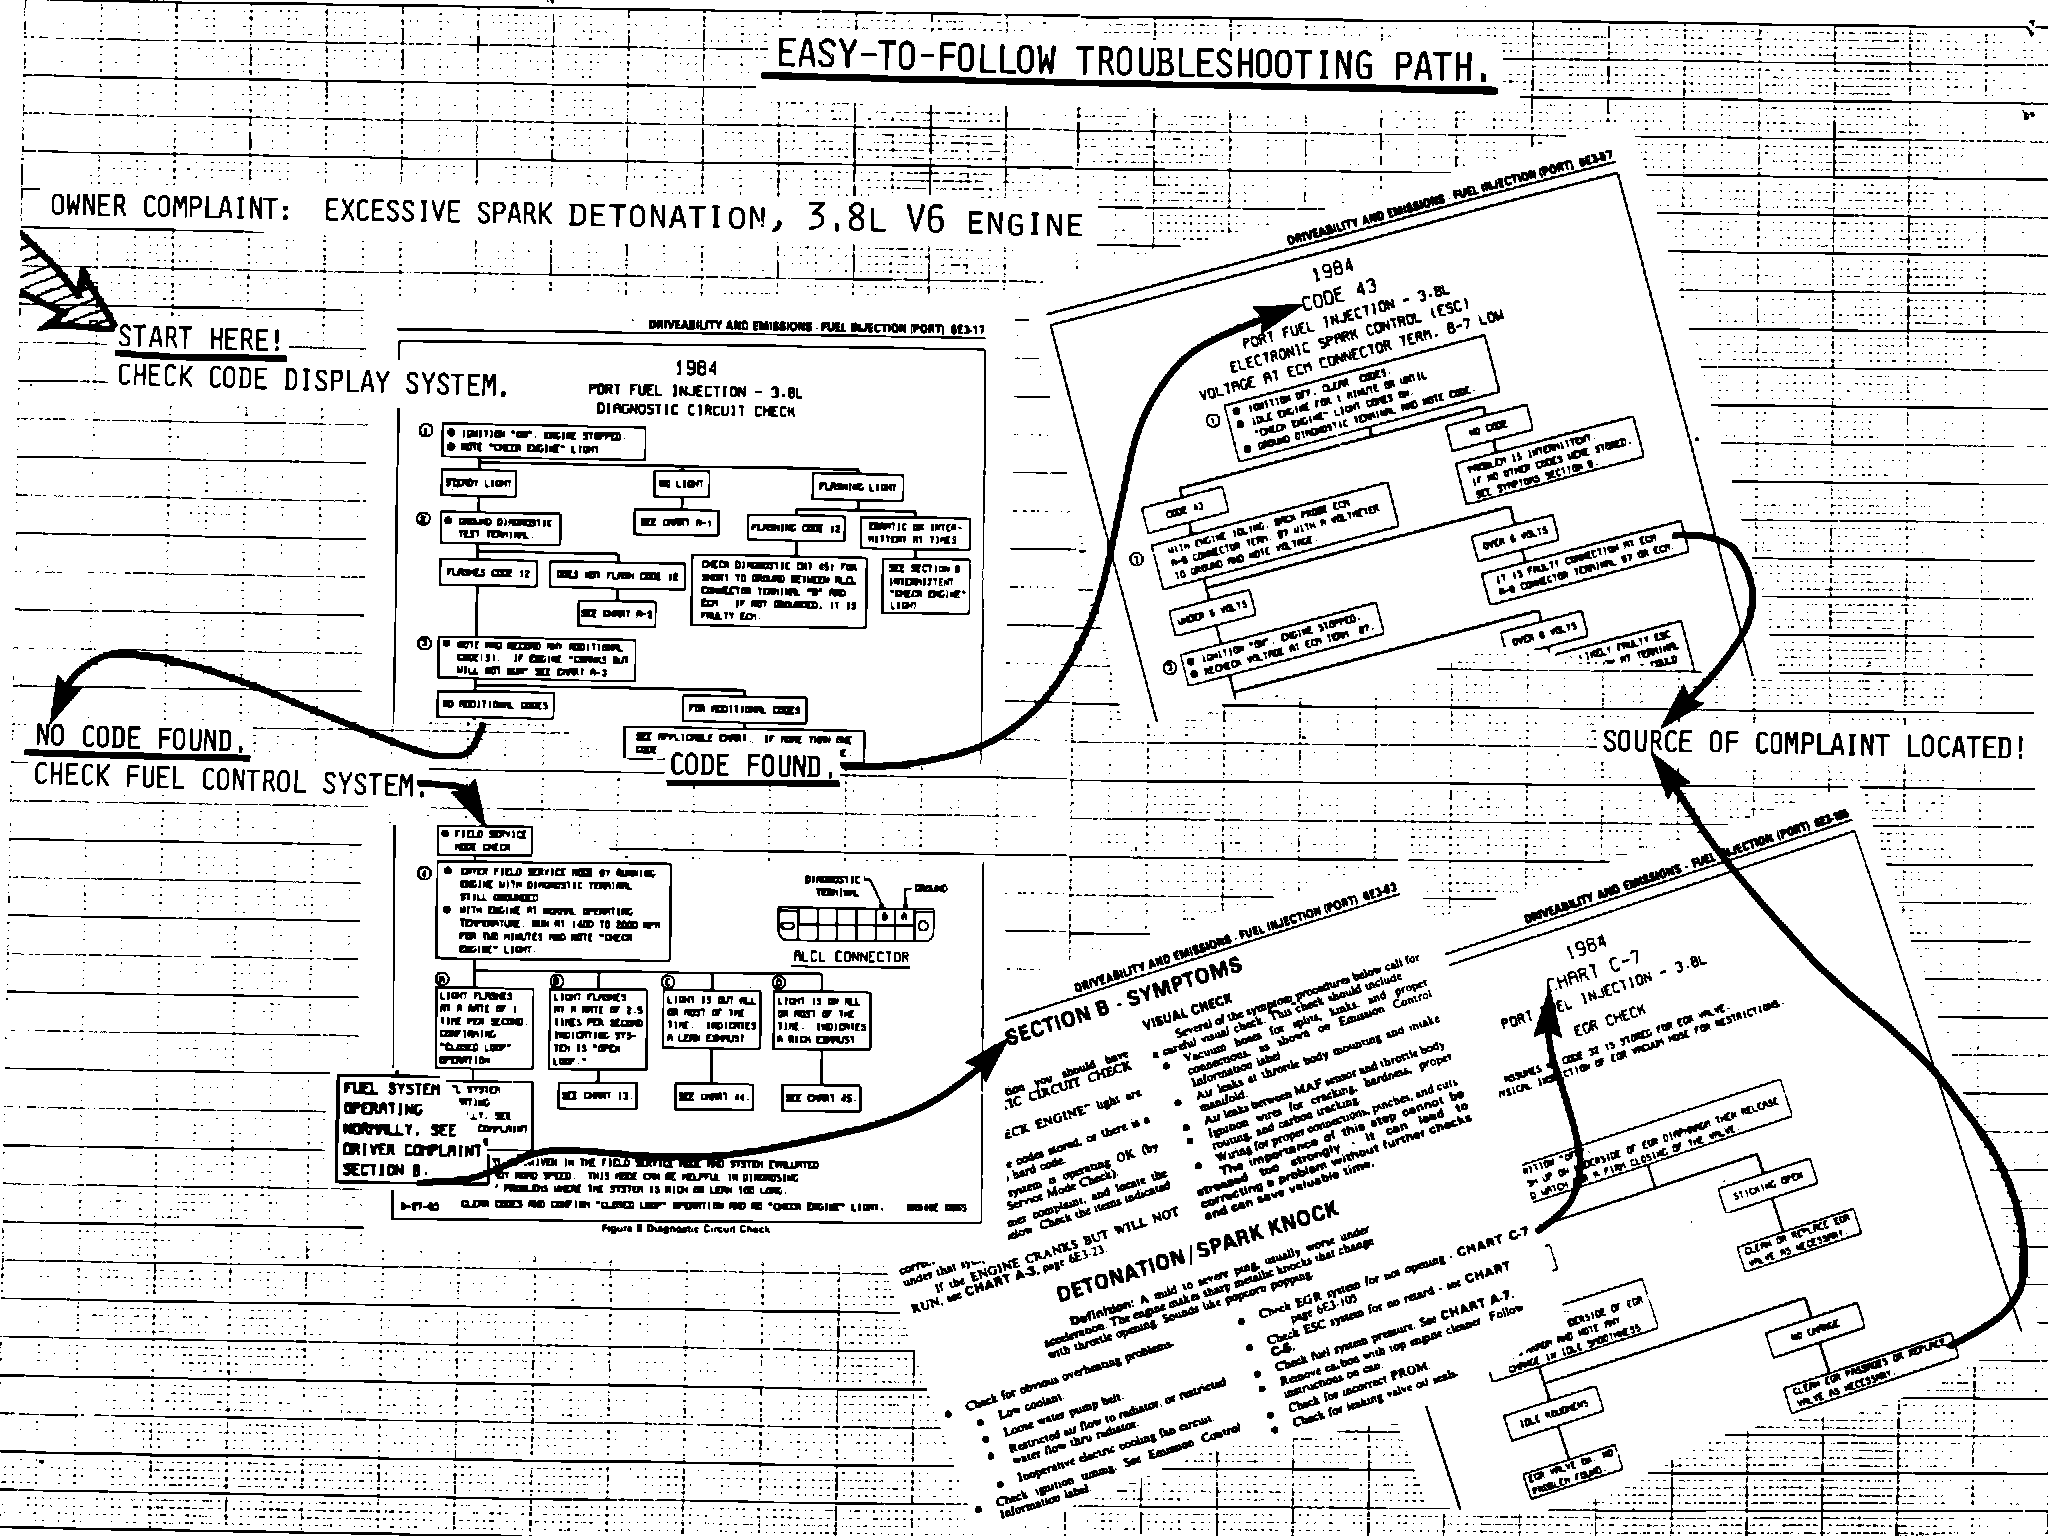 EASY-TO-FOLLOW TROUBLESHOOTING PATH.
OWNER COMPLAINT: EXCESSIVE SPARK DETONATION, 3.8L V6 ENGINE
START HERE!
CHECK CODE DISPLAY SYSTEM.
DRIVEABILITY AND EMISSIONS - FUEL INJECTION (PORT) 6E3-17
1984
PORT FUEL INJECTION - 3.8L
DIAGNOSTIC CIRCUIT CHECK
1
IGNITION "ON". ENGINE STOPPED.
NOTE "CHECK ENGINE" LIGHT
STEADY LIGHT
NO LIGHT
FLASHING LIGHT
2
GROUND DIAGNOSTIC
TEST TERMINAL.
SEE CHART A-1
FLASHING CODE 12
ERRATIC OR INTER-
MITTENT AT TIMES
FLASHES CODE 12
DOES NOT FLASH CODE 12
SEE CHART A-2
CHECK DIAGNOSTIC CKT 451 FOR
SHORT TO GROUND BETWEEN ALCL
CONNECTOR TERMINAL "B" AND
ECM. IF NOT GROUNDED, IT IS
FAULTY ECM.
SEE SECTION B
INTERMITTENT
"CHECK ENGINE"
LIGHT
3
NOTE AND RECORD ANY ADDITIONAL
CODE(S). IF ENGINE "CRANKS BUT
WILL NOT RUN" SEE CHART A-3
NO ADDITIONAL CODES
FOR ADDITIONAL CODES
SEE APPLICABLE CHART. IF MORE THAN ONE
CODE
CODE FOUND.
NO CODE FOUND.
CHECK FUEL CONTROL SYSTEM.
FIELD SERVICE
MODE CHECK
4
ENTER FIELD SERVICE MODE BY RUNNING
ENGINE WITH DIAGNOSTIC TERMINAL
STILL GROUNDED
WITH ENGINE AT NORMAL OPERATING
TEMPERATURE. RUN AT 1400 TO 2000 RPM
FOR TWO MINUTES AND NOTE "CHECK
ENGINE" LIGHT.
DIAGNOSTIC
TERMINAL
GROUND
B A
ALCL CONNECTOR
A
LIGHT FLASHES
AT A RATE OF 1
TIME PER SECOND.
CONFIRMING
"CLOSED LOOP"
OPERATION
B
LIGHT FLASHES
AT A RATE OF 2.5
TIMES PER SECOND
INDICATING SYS-
TEM IS "OPEN
LOOP."
C
LIGHT IS OUT ALL
OR MOST OF THE
TIME. INDICATES
A LEAN EXHAUST
D
LIGHT IS ON ALL
OR MOST OF THE
TIME. INDICATES
A RICH EXHAUST
SEE CHART 13.
SEE CHART 44.
SEE CHART 45.
FUEL SYSTEM
OPERATING
NORMALLY, SEE
DRIVER COMPLAINT
SECTION B.
DRIVEN IN THE FIELD SERVICE MODE AND SYSTEM EVALUATED
AT ROAD SPEED. THIS MODE CAN BE HELPFUL IN DIAGNOSING
PROBLEMS WHERE THE SYSTEM IS RICH OR LEAN TOO LONG.
CLEAR CODES AND CONFIRM "CLOSED LOOP" OPERATION AND NO "CHECK ENGINE" LIGHT.
Figure 8 Diagnostic Circuit Check
DRIVEABILITY AND EMISSIONS - FUEL INJECTION (PORT) 6E3-57
1984
CODE 43
PORT FUEL INJECTION - 3.8L
ELECTRONIC SPARK CONTROL (ESC)
VOLTAGE AT ECM CONNECTOR TERM. B-7 LOW
1
IGNITION OFF, CLEAR CODES.
IDLE ENGINE FOR 1 MINUTE OR UNTIL
"CHECK ENGINE" LIGHT COMES ON.
GROUND DIAGNOSTIC TERMINAL AND NOTE CODE.
CODE 43
NO CODE
PROBLEM IS INTERMITTENT.
IF NO OTHER CODES WERE STORED,
SEE SYMPTOMS SECTION B.
1
WITH ENGINE IDLING, BACK PROBE ECM
A-B CONNECTOR TERM. B7 WITH A VOLTMETER
TO GROUND AND NOTE VOLTAGE.
UNDER 6 VOLTS
OVER 6 VOLTS
IT IS FAULTY CONNECTION AT ECM
A-B CONNECTOR TERMINAL B7 OR ECM
2
IGNITION "ON", ENGINE STOPPED.
RECHECK VOLTAGE AT ECM TERM B7.
OVER 6 VOLTS
LIKELY FAULTY ESC
AT TERMINAL
COULD
SOURCE OF COMPLAINT LOCATED!
DRIVEABILITY AND EMISSIONS - FUEL INJECTION (PORT) 6E3-93
SECTION B - SYMPTOMS
VISUAL CHECK
Several of the symptom procedures below call for
a careful visual check. This check should include
Vacuum hoses for splits, kinks, and proper
connections, as shown on Emission Control
Information label
Air leaks at throttle body mounting and intake
manifold.
Air leaks between MAF sensor and throttle body
Ignition wires for cracking, hardness, proper
routing, and carbon tracking.
Wiring for proper connections, pinches, and cuts
The importance of this step cannot be
stressed too strongly - it can lead to
correcting a problem without further checks
and can save valuable time.
tion you should have
IC CIRCUIT CHECK
ECK ENGINE" light are
codes stored, or there is a
hard code.
system is operating OK (by
Service Mode Check).
mer complaint, and locate the
elow Check the items indicated
under that
If the ENGINE CRANKS BUT WILL NOT
RUN, see CHART A-3, page 6E3-23.
DETONATION/SPARK KNOCK
Definition: A mild to severe ping, usually worse under
acceleration. The engine makes sharp metallic knocks that change
with throttle opening. Sounds like popcorn popping.
Check for obvious overheating problems.
Low coolant
Loose water pump belt.
Restricted air flow to radiator, or restricted
water flow thru radiator.
Inoperative electric cooling fan circuit
Check ignition timing. See Emission Control
Information label
Check EGR system for not opening - CHART C-7
page 6E3-105
Check ESC system for no retard - see CHART
C-5.
Check fuel system pressure. See CHART A-7.
Remove carbon with top engine cleaner Follow
instructions on can.
Check for incorrect PROM
Check for leaking valve oil seals.
DRIVEABILITY AND EMISSIONS - FUEL INJECTION (PORT)
1984
CHART C-7
PORT FUEL INJECTION - 3.8L
EGR CHECK
ASSUMES NO CODE 32 IS STORED FOR EGR VALVE.
PHYSICAL INSPECTION OF EGR VACUUM HOSE FOR RESTRICTIONS.
UP ON UNDERSIDE OF EGR DIAPHRAGM THEN RELEASE
WATCH FOR A FIRM CLOSING OF THE VALVE
STICKING OPEN
CLEAN OR REPLACE EGR
VALVE AS NECESSARY
DERSIDE OF EGR
AND NOTE ANY
CHANGE IN IDLE SMOOTHNESS
NO CHANGE
CLEAN EGR PASSAGES OR REPLACE
VALVE AS NECESSARY.
IDLE ROUGHENS
EGR VALVE OK. NO
PROBLEM FOUND